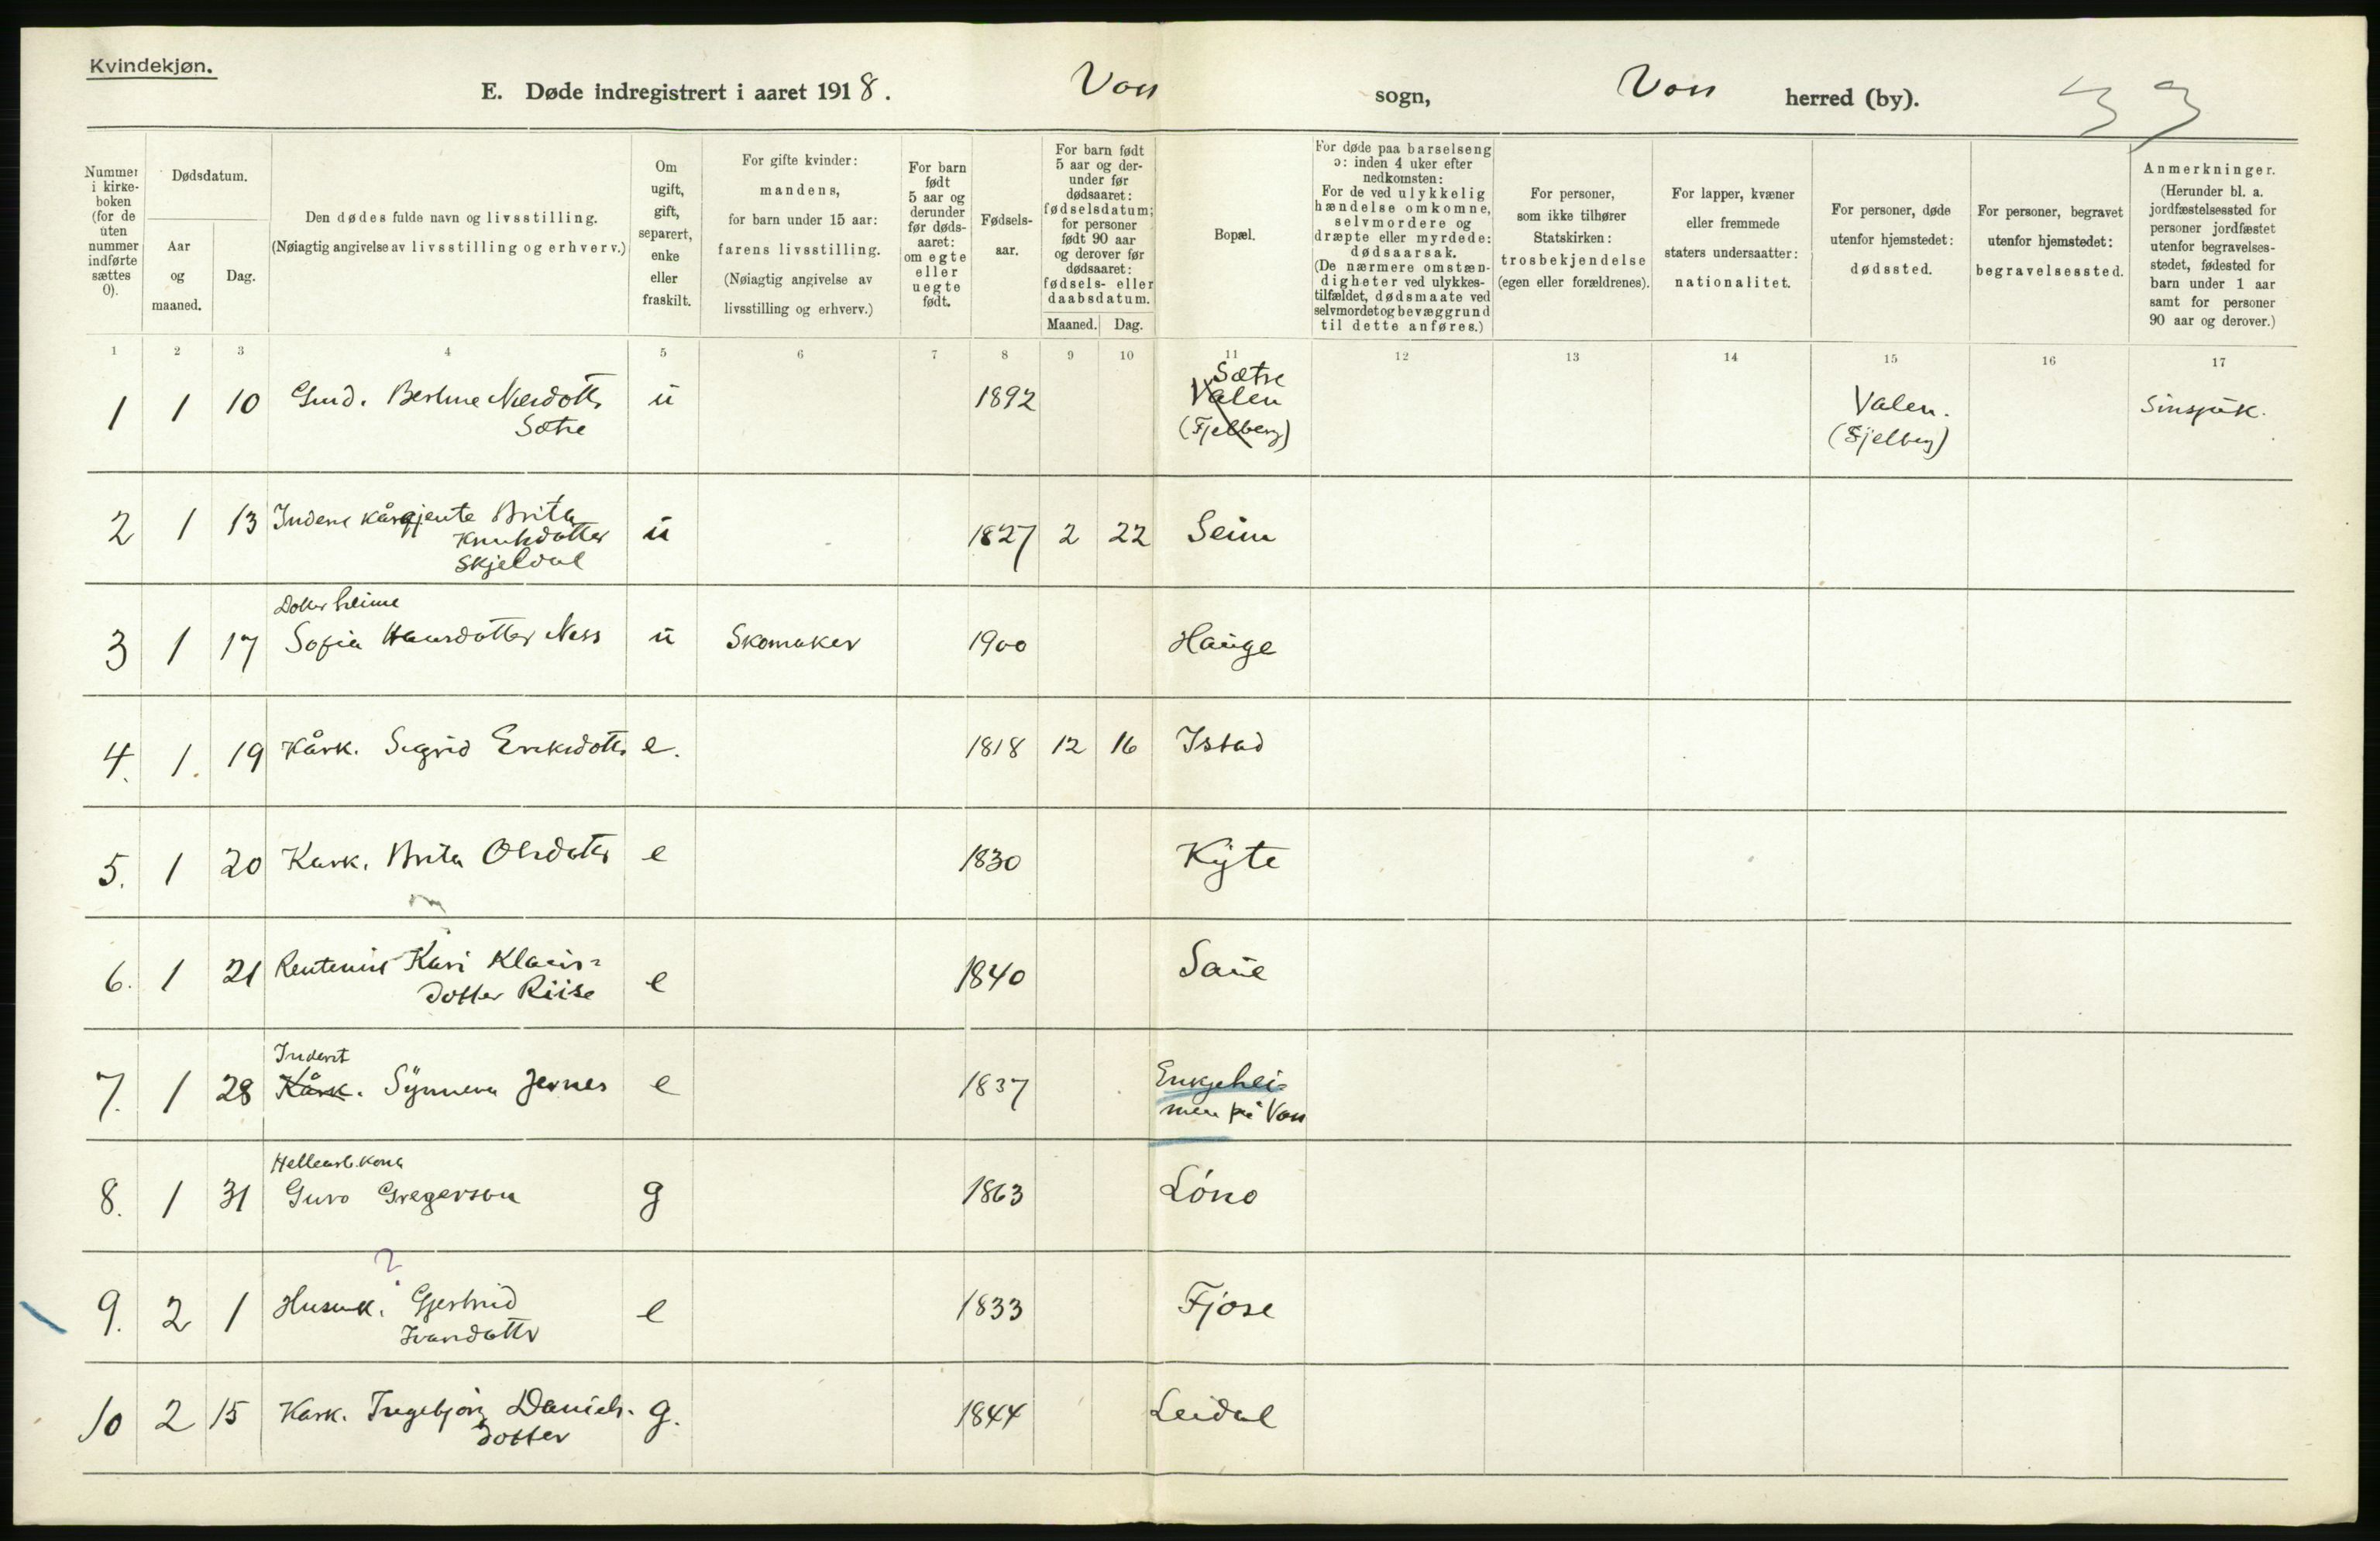 Kvindekjøn.
E. Døde indregistrert i aaret 1918. Voss sogn, Voss herred (by). 33
Nummer i kirkeboken (for de uten nummer indførte sættes 0).
Dødsdatum.
Aar og maaned.
Dag.
Den dødes fulde navn og livsstilling.
(Nøiagtig angivelse av livsstilling og erhverv.)
Om ugift, gift, separert, enke eller fraskilt.
For gifte kvinder: mandens, for barn under 15 aar: farens livsstilling. (Nøiagtig angivelse av livsstilling og erhverv.)
For barn født 5 aar og derunder før dødsaaret: om egte eller uegte født.
Fødselsaar.
For barn født 5 aar og derunder før dødsaaret: fødselsdatum; for personer født 90 aar og derover før dødsaaret: fødsels- eller daabsdatum.
Maaned. Dag.
Bopæl.
For døde paa barselseng ɔ: inden 4 uker efter nedkomsten: For de ved ulykkelig hændelse omkomne, selvmordere og dræpte eller myrdede: dødsaarsak. (De nærmere omstændigheter ved ulykkestilfældet, dødsmaate ved selvmordet og bevæggrund til dette anføres.)
For personer, som ikke tilhører Statskirken: trosbekjendelse (egen eller forældrenes).
For lapper, kvæner eller fremmede staters undersaatter: nationalitet.
For personer, døde utenfor hjemstedet: dødssted.
For personer, begravet utenfor hjemstedet: begravelsessted.
Anmerkninger. (Herunder bl. a. jordfæstelsessted for personer jordfæstet utenfor begravelsesstedet, fødested for barn under 1 aar samt for personer 90 aar og derover.)
1 2 3 4 5 6 7 8 9 10 11 12 13 14 15 16 17
1 1 10 Berthe Nilsdottr Sætre u 1892 Sætre Valen (Fjelberg) Valen. (Fjelberg) Sinssjuk.
2 1 13 Inderst kårgjente Brita Knutsdotter Skjeldal u 1827 2 22 Seim
Dotter heime
3 1 17 Sofia Hansdotter Ness u Skomaker 1900 Hauge
4. 1. 19 Kårk. Sigrid Eriksdottr e. 1818 12 16 Istad
5. 1 20 Kark. Brita Olsdotter e 1830 Kyte
6. 1 21 Kari Klausdotter Riise e 1840 Saue
Inderst
7. 1 28 Kårk. Synneva Jernes e 1837 Enkjeheimen på Voss
8. 1 31 Guro Gregerson g 1863 Lóno
?
9. 2 1 Husmk. Gjertrud Ivarsdottr e 1833 Fjose
10 2 15 Kark. Ingebjorg Danielsdotter g. 1844 Leidal